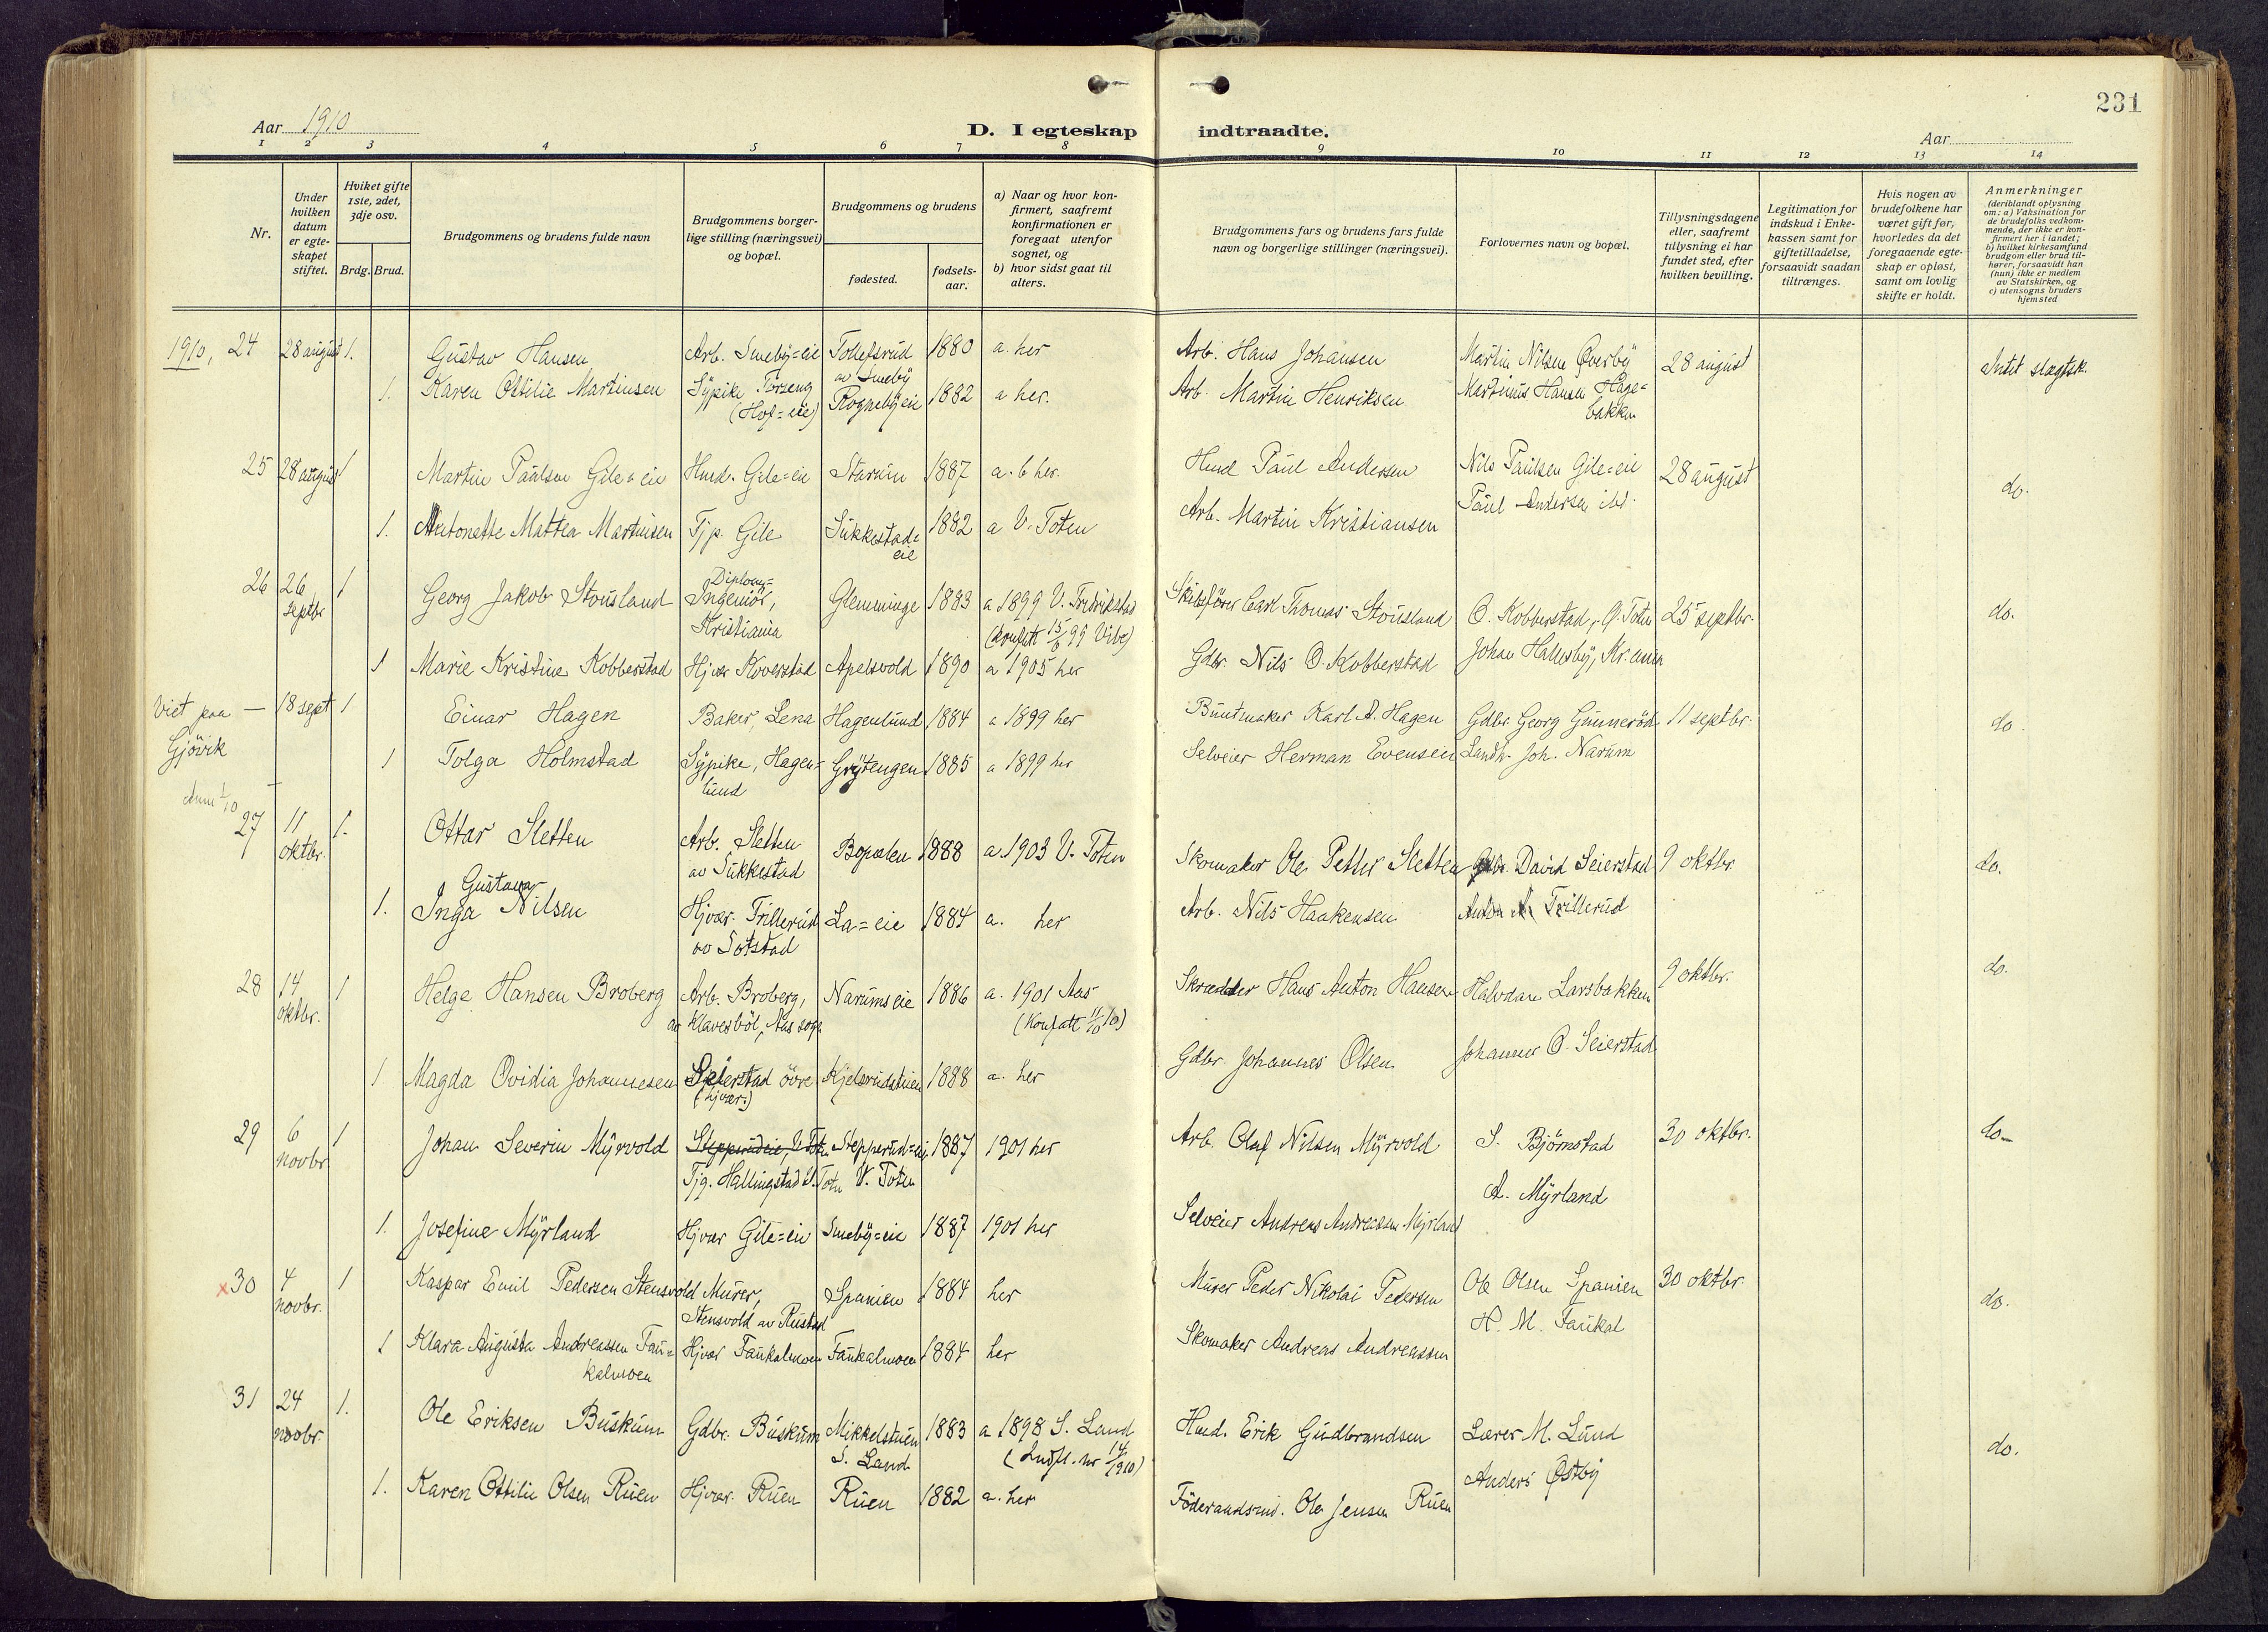 231
Aar 1910
D. I egteskap indtraadte.
Aar
1 2 3 4 5 6 7 8 9 10 11 12 13 14
Nr.
Under hvilken datum er egteskapet stiftet.
Hviket gifte 1ste, 2det, 3dje osv.
Brdg. Brud.
Brudgommens og brudens fulde navn
Brudgommens borgerlige stilling (næringsvei) og bopæl.
Brudgommens og brudens
fødested.
fødselsaar.
a) Naar og hvor konfirmert, saafremt konfirmationen er foregaat utenfor sognet, og
b) hvor sidst gaat til alters.
Brudgommens fars og brudens fars fulde navn og borgerlige stillinger (næringsvei).
Forlovernes navn og bopæl.
Tillysningsdagene eller, saafremt tillysning ei har fundet sted, efter hvilken bevilling.
Legitimation for indskud i Enkekassen samt for giftetilladelse, forsaavidt saadan tiltrænges.
Hvis nogen av brudefolkene har været gift før, hvorledes da det foregaaende egteskap er opløst, samt om lovlig skifte er holdt.
Anmerkninger (deriblandt oplysning om: a) Vaksination for de brudefolks vedkommende, der ikke er konfirmert her i landet; b) hvilket kirkesamfund brudgom eller brud tilhører, forsaavidt han (hun) ikke er medlem av Statskirken, og c) utensogns bruders hjemsted
1910, 24 28 august 1. Gustav Hansen Arb. Smeby=eie Tollefsrud av Smeby 1880 a. her Arb. Hans Johansen Martin Nilsen Øverby 28 august Intet slegtsk.
1. Karen Ottilie Martinsen Sypike, Torseng (Hof=eie) Rognebyeie 1882 a her. Arb. Martin Henriksen Martinus Hansen Hagebakken
25 28 august 1 Martin Paulsen Gile=eie Hmd. Gile=eie Starum 1887 a. b her. Hmd Paul Andersen Nils Paulsen Gile=eie 28 august do.
1. Antonette Mathea Martinsen Tjp. Gile Sukkestad=eie 1882 a V. Toten Arb. Martin Kristiansen Paul Andersen ibd.
26 26 septbr 1 Georg Jakob Stousland Diplom=Ingeniør, Kristiania Glemminge 1883 a 1899 V. Fredrikstad Skibsfører Carl Thomas Stousland O. Kobberstad, Ø. Toten 25 septbr. do.
1 Marie Kristine Kobberstad Hjvær Koverstad Apelsvold 1890 a 1905 her Gdbr. Nils O. Kobberstad Johan Hallesby, Kr.ania
Viet paa Gjøvik — 18 sept 1 Einar Hagen Baker, Lena Hagenlund 1884 a 1899 her Buntmaker Karl A. Hagen Gdbr. Georg Gunnerød 11 septbr. do.
1 Tolga Holmstad Sypike, Hagenlund Grytengen 1885 a 1899 her Selveier Herman Evensen Landh. Joh. Narum
27 11 oktbr. 1. Ottar Sletten Arb. Sletten av Sukkestad Bopælen 1888 a. 1903 V. Toten Skomaker Ole Petter Sletten Gdbr. David Seierstad 9 oktbr. do.
1. Inga Gustava Nilsen Hjvær. Trillerud av Sotstad La=eie 1884 a. her Arb. Nils Haakensen Anton Trillerud
28 14 oktbr. 1 Helge Hansen Broberg Arb. Broberg, av Klavesbøl, Aas sogn Narumseie 1886 a. 1901 Aas (Konfatt 11/10 10) Skrædder Hans Anton Hansen Halvdan Larsbakken 9 oktbr. do.
1 Magda Ovidia Johannesen Seierstad øvre (hjvær.) Kjelsrudstuen 1888 a. her Gdbr. Johannes Olsen Johannes O. Seierstad
29 6 novbr. 1 Johan Severin Myrvold Stepperudeie, V. Toten Tjg. Hallingstad V. Toten Stepperud=eie V. Toten 1887 1901 her Arb. Oluf Nilsen Myrvold S. Bjørnstad 30 oktbr. do.
1. Josefine Myrland Hjvær Gile=eie Smeby=eie 1887 1901 her Selveier Andreas Andreassen Myrland A. Myrland
x30 4 novbr. 1 Kaspar Emil Pedersen Stensvold Murer, Stensvold av Rustad Spanien 1884 her Murer Peder Nikolai Pedersen Ole Olsen Spanien 30 oktbr. do.
1 Klara Augusta Andreassen Faukalmoen Hjvær Faukalmoen Faukalmoen 1884 her Skomaker Andreas Andreassen H. M. Faukal
31 24 novbr. 1. Ole Eriksen Buskum Gdbr. Buskum Mikkelstuen S. Land 1883 a 1898 S. Land Hmd. Erik Gudbrandsen Lærer M. Lund do.
1. Karen Ottilie Olsen Ruen Hjvær. Ruen Ruen 1882 a. her Føderaadsmd. Ole Jensen Ruen Anders Østby